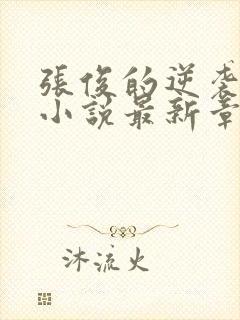 張俊的逆袭
小說最新章
沐流火